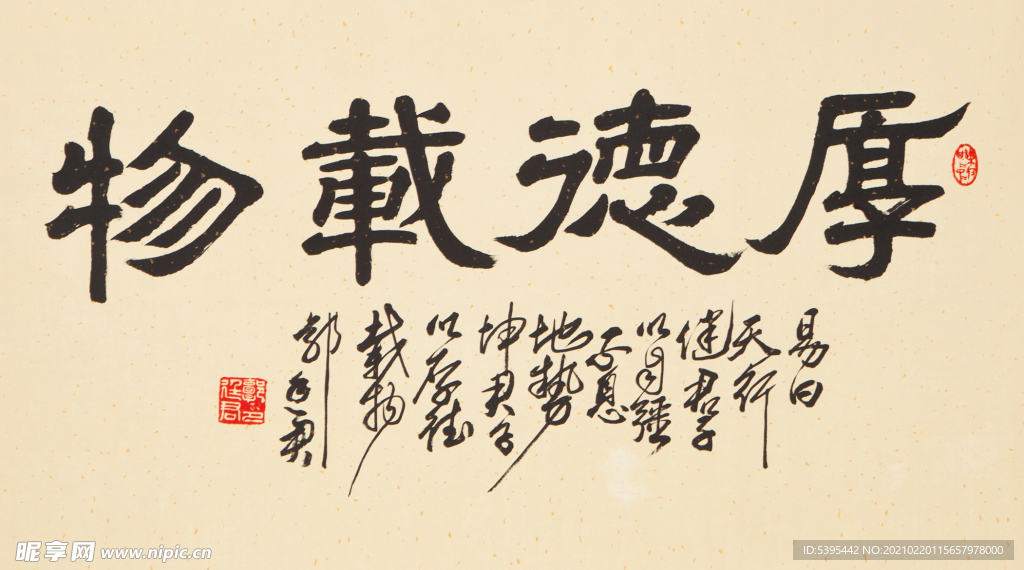 厚德載物
易曰
天行
健君子
以自强
不息
地勢
坤君子
以厚德
載物
郭
昵享网 www.nipic.cn
ID:5395442 NO:20210220115657978000